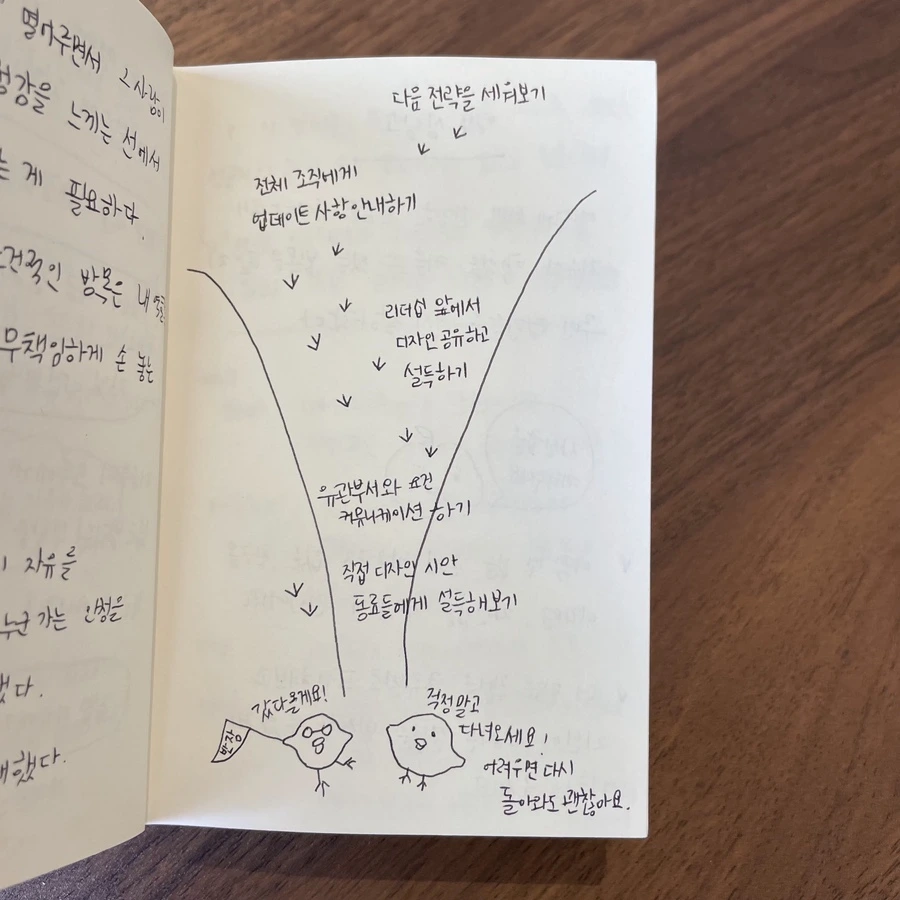 열어주면서 그 사람이
정감을 느끼는 선에서
는 게 필요하다.
조건적인 방목은 내
무책임하게 손 놓는
자유를
누군가는 안정을
했다.
해했다.
다음 전략을 세워보기
전체 조직에게
업데이트 사항 안내하기
리더십 앞에서
디자인 공유하고
설득하기
유관부서와 요건
커뮤니케이션 하기
직접 디자인 시안
동료들에게 설득해보기
갔다올게요!
걱정말고
다녀오세요!
어려우면 다시
돌아와도 괜찮아요.